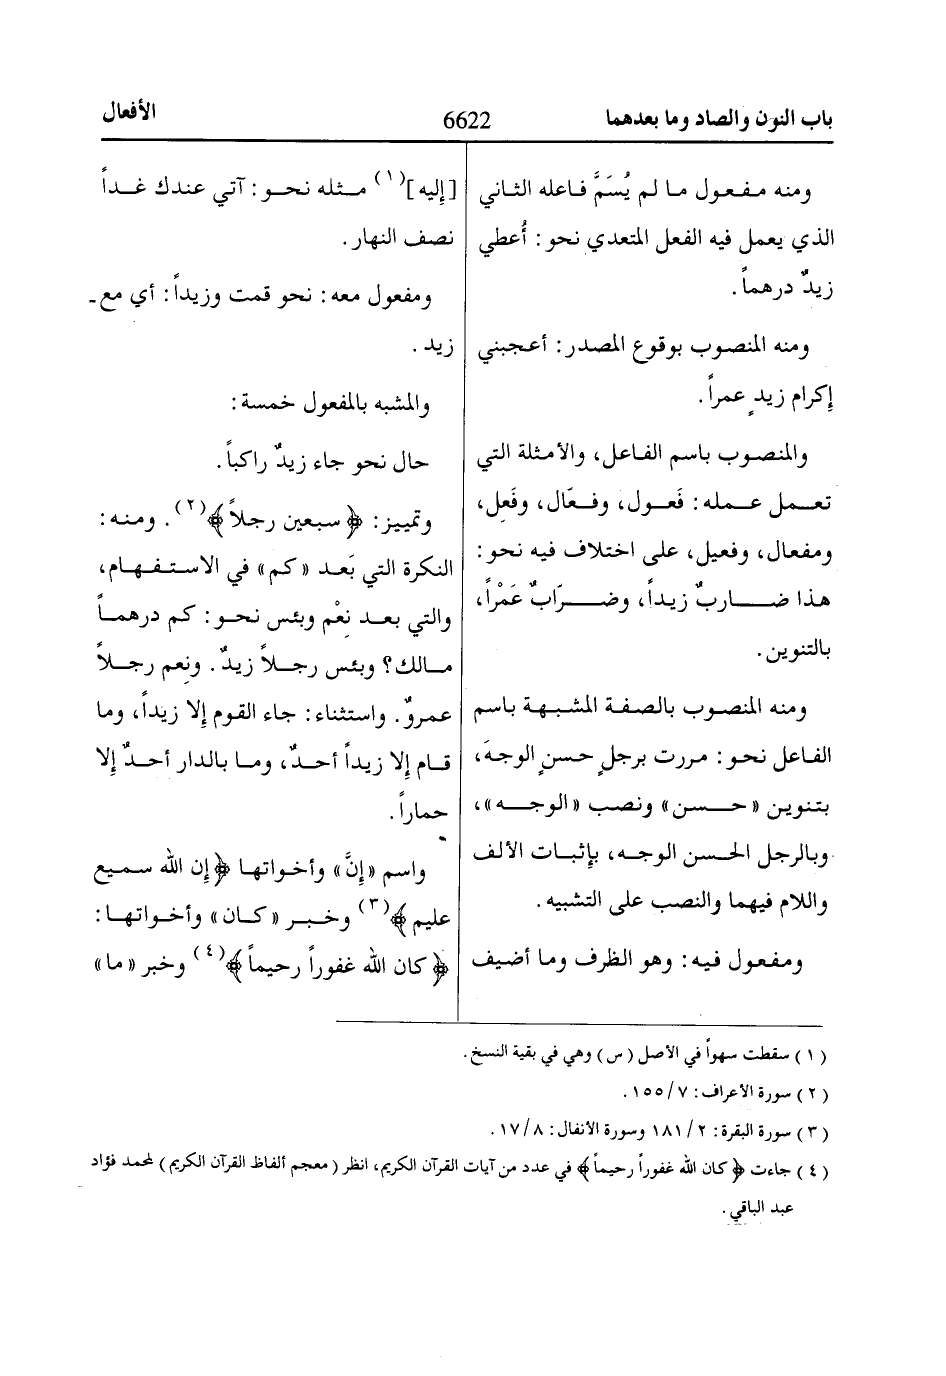 باب النون والصاد وما بعدهما
6622
الأفعال
ومنه مفعول ما لم يُسَمَّ فاعله الثاني
الذي يعمل فيه الفعل المتعدي نحو: أُعطي
زيدٌ درهماً.
ومنه المنصوب بوقوع المصدر: أعجبني
إكرام زيدٍ عمراً.
والمنصوب باسم الفاعل، والأمثلة التي
تعمل عمله: فَعول، وفعّال، وفَعِل،
ومفعال، وفعيل، على اختلاف فيه نحو:
هذا ضاربٌ زيداً، وضرّابٌ عَمْراً،
بالتنوين.
ومنه المنصوب بالصفة المشبهة باسم
الفاعل نحو: مررت برجلٍ حسنٍ الوجهَ،
بتنوين «حسن» ونصب «الوجه»،
وبالرجل الحسن الوجه، بإثبات الألف
واللام فيهما والنصب على التشبيه.
ومفعول فيه: وهو الظرف وما أضيف
[إليه](١) مثله نحو: آتي عندك غداً
نصف النهار.
ومفعول معه: نحو قمت وزيداً: أي مع
زيد.
والمشبه بالمفعول خمسة:
حال نحو جاء زيدٌ راكباً.
وتمييز: ﴿سبعين رجلاً﴾(٢). ومنه:
النكرة التي بَعد «كم» في الاستفهام،
والتي بعد نِعْم وبئس نحو: كم درهماً
مالك؟ وبئس رجلاً زيدٌ. ونعم رجلاً
عمروٌ. واستثناء: جاء القوم إلا زيداً، وما
قام إلا زيداً أحدٌ، وما بالدار أحدٌ إلا
حماراً.
واسم «إنَّ» وأخواتها ﴿إن الله سميع
عليم﴾(٣) وخبر «كان» وأخواتها:
﴿كان الله غفوراً رحيماً﴾(٤) وخبر «ما»
(١) سقطت سهواً في الأصل (س) وهي في بقية النسخ.
(٢) سورة الأعراف: ٧/١٥٥.
(٣) سورة البقرة: ٢/١٨١ وسورة الأنفال: ٨/١٧.
(٤) جاءت ﴿كان الله غفوراً رحيماً﴾ في عدد من آيات القرآن الكريم، انظر (معجم ألفاظ القرآن الكريم) لمحمد فؤاد
عبد الباقي.